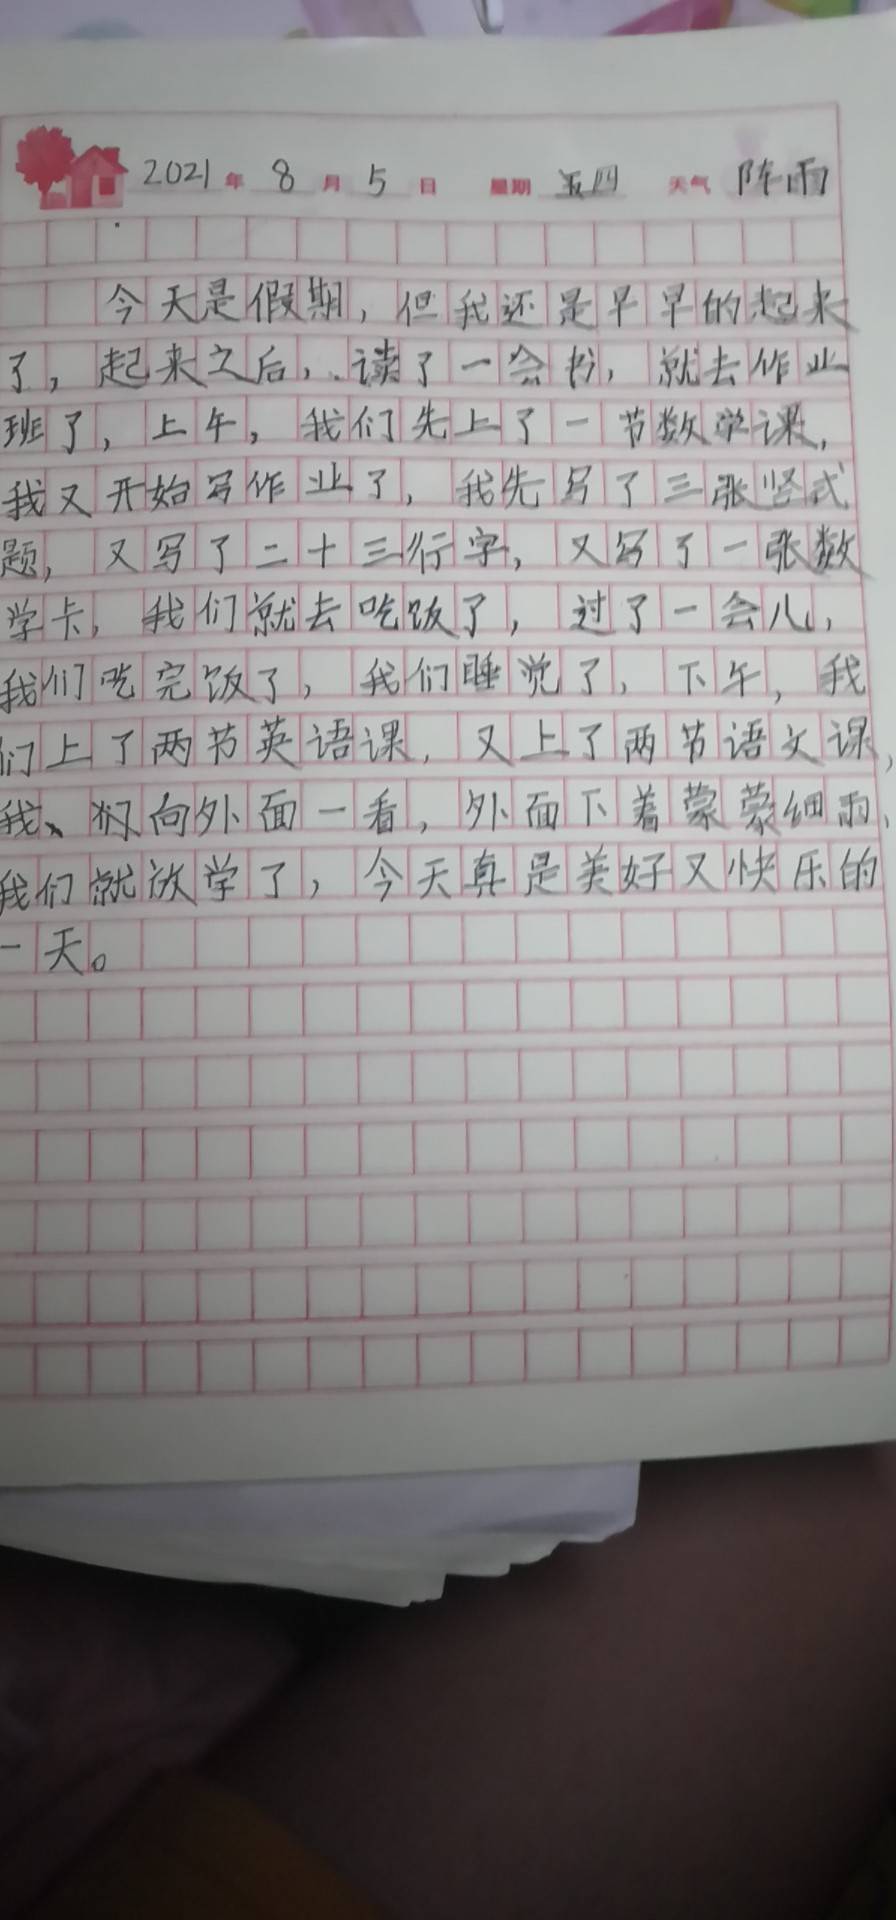 2021年 8月 5日 星期 四 天气 阵雨
今天是假期，但我还是早早的起来
了，起来之后，读了一会书，就去作业
班了，上午，我们先上了一节数学课，
我又开始写作业了，我先写了三张竖式
题，又写了二十三行字，又写了一张数
学卡，我们就去吃饭了，过了一会儿，
我们吃完饭了，我们睡觉了，下午，我
们上了两节英语课，又上了两节语文课，
我、们向外面一看，外面下着蒙蒙细雨，
我们就放学了，今天真是美好又快乐的
一天。